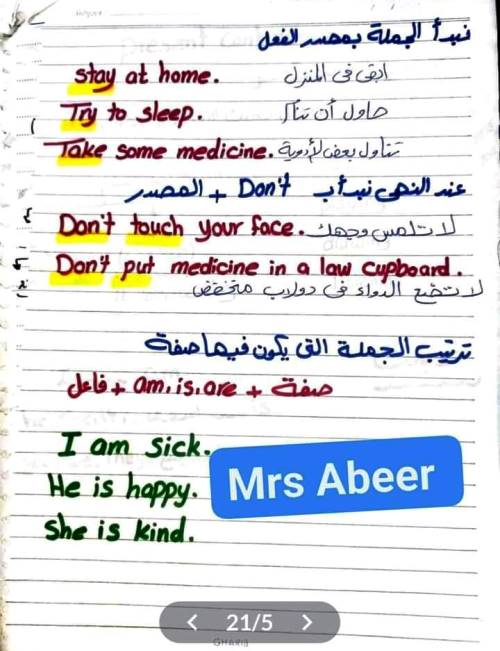 نبدأ الجملة بمصدر الفعل
stay at home. ابقى فى المنزل
Try to sleep. حاول أن تنام
Take some medicine. تناول بعض الأدوية
عند النهى نبدأ ب Don't + المصدر
Don't touch your face. لا تلمس وجهك
Don't put medicine in a law cupboard.
لا تضع الدواء فى دولاب منخفض
ترتيب الجملة التى يكون فيها صفة
فاعل + am. is. are + صفة
I am sick.
He is happy.
She is kind.
Mrs Abeer
21/5
GHARIB